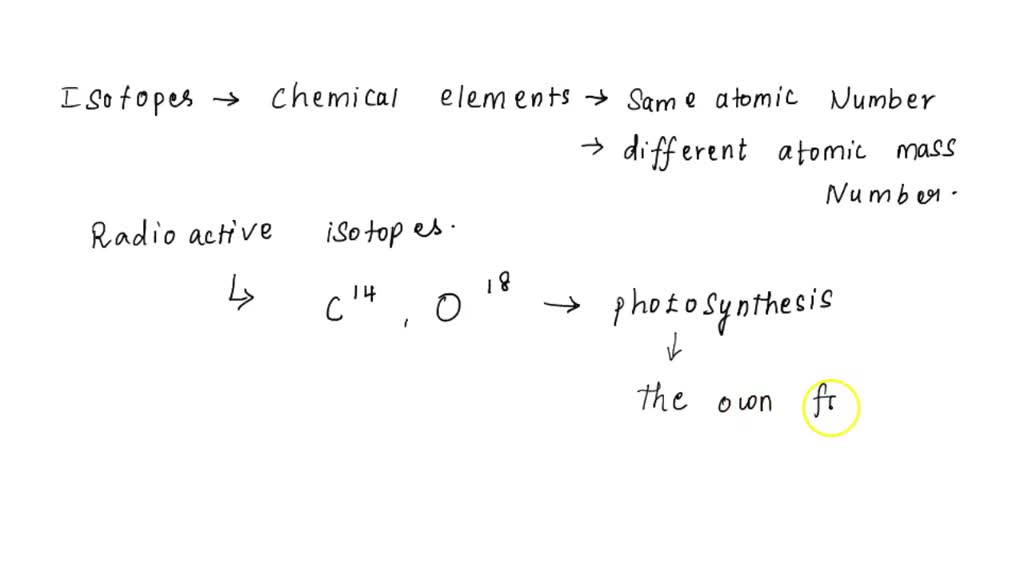 Isotopes → chemical elements → Same atomic Number
→ different atomic mass
Number.
Radio active isotopes.
↳ C¹⁴, O¹⁸ → photosynthesis
↓
The own